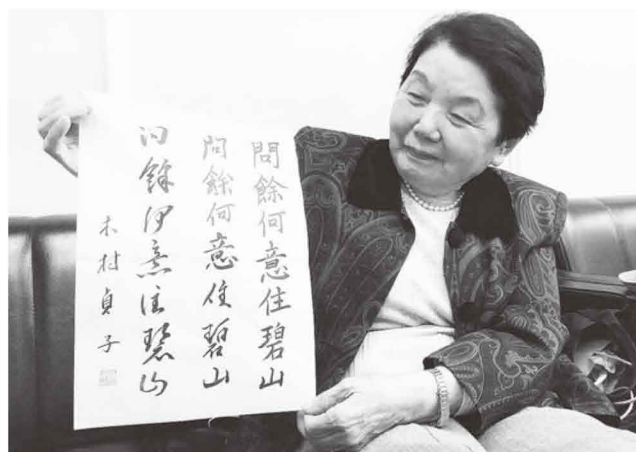 問餘何意住碧山
問餘何意住碧山
問餘何意住碧山
木村貞子